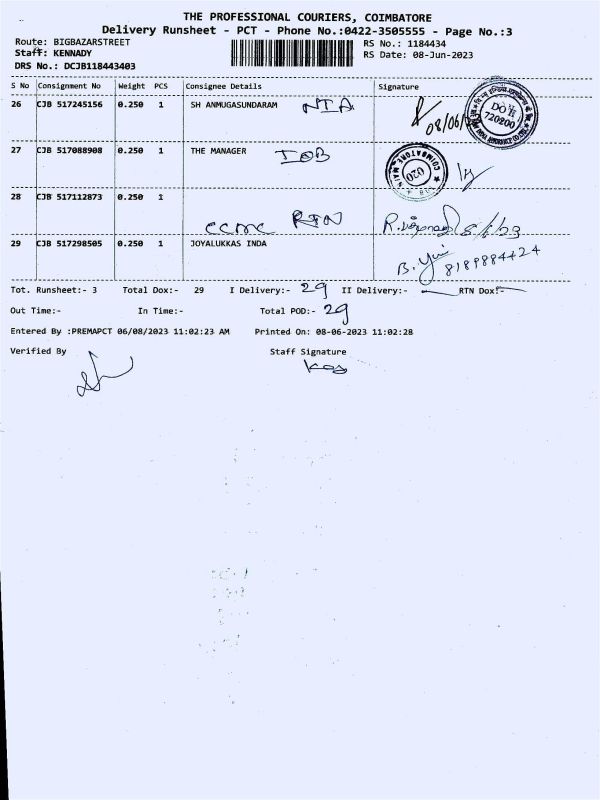 THE PROFESSIONAL COURIERS, COIMBATORE
Delivery Runsheet - PCT - Phone No.:0422-3505555 - Page No.:3
Route: BIGBAZARSTREET RS No.: 1184434
Staff: KENNADY RS Date: 08-Jun-2023
DRS No.: DCJB118443403
S No Consignment No Weight PCS Consignee Details Signature
26 CJB 517245156 0.250 1 SH ANMUGASUNDARAM NIA
08/06/
DO II
720800
27 CJB 517088908 0.250 1 THE MANAGER IOB
COIMBATORE MAIN
020
28 CJB 517112873 0.250 1
CCMC RTN 8/6/23
29 CJB 517298505 0.250 1 JOYALUKKAS INDA
8189884424
Tot. Runsheet:- 3 Total Dox:- 29 I Delivery:- 29 II Delivery:- RTN Dox:-
Out Time:- In Time:- Total POD:- 29
Entered By :PREMAPCT 06/08/2023 11:02:23 AM Printed On: 08-06-2023 11:02:28
Verified By Staff Signature